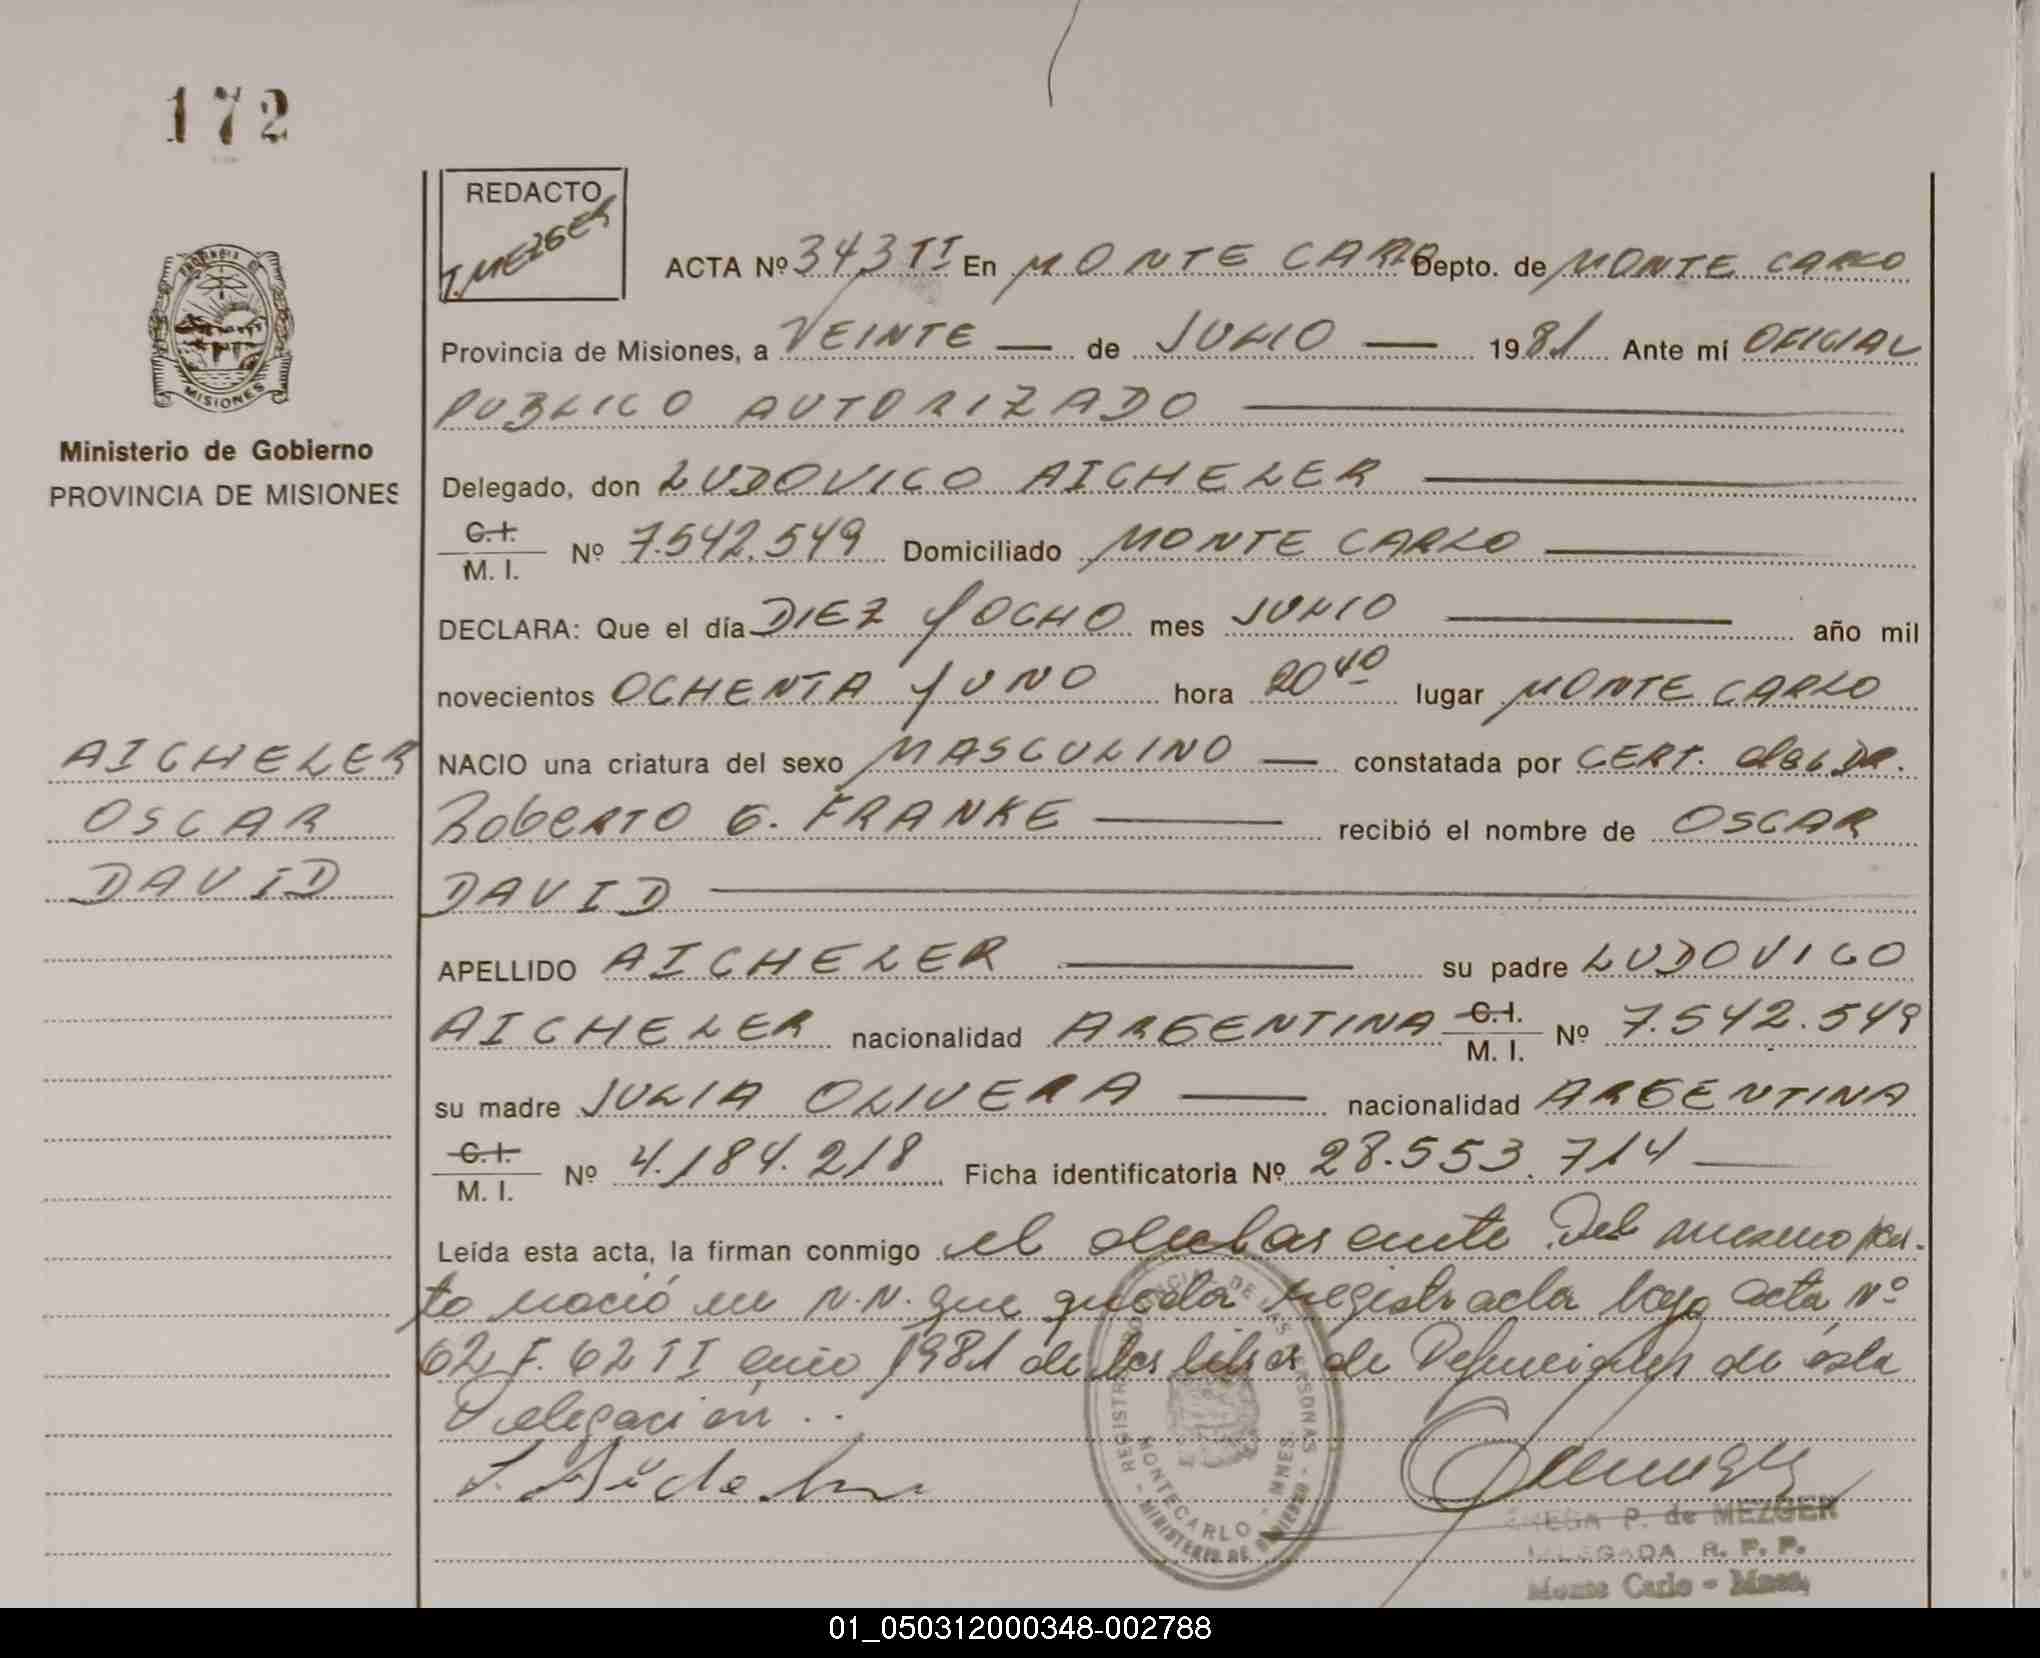 172
REDACTO
T. MEZGER
ACTA Nº 343 TI En MONTE CARLO Depto. de MONTE CARLO
Provincia de Misiones, a VEINTE — de JULIO — 1981 Ante mí OFICIAL
PUBLICO AUTORIZADO
PROVINCIA DE
MISIONES
Ministerio de Gobierno
PROVINCIA DE MISIONES
Delegado, don LUDOVICO AICHELER
C.I.
M. I. Nº 7.542.549 Domiciliado MONTE CARLO
DECLARA: Que el día DIEZ Y OCHO mes JULIO año mil
novecientos OCHENTA Y UNO hora 20 40 lugar MONTE CARLO
AICHELER
OSCAR
DAVID
NACIO una criatura del sexo MASCULINO — constatada por CERT. del DR.
RobERTO G. FRANKE recibió el nombre de OSCAR
DAVID
APELLIDO AICHELER su padre LUDOVICO
AICHELER nacionalidad ARGENTINA C.I. M. I. Nº 7.542.549
su madre JULIA OLIVERA — nacionalidad ARGENTINA
C.I.
M. I. Nº 4.184.218 Ficha identificatoria Nº 28.553.714
Leída esta acta, la firman conmigo el declarante Del mismo par-
to nació un N.N. que queda registrada bajo acta Nº
62 F. 62 TI año 1981 de los libros de Defunciones de ésta
Delegación..
REGISTRO PROVINCIAL DE LAS PERSONAS
MONTECARLO - MNES.
MINISTERIO DE GOBIERNO
P. de MEZGER
DELEGADA R. P. P.
Monte Carlo - Mnes.
01_050312000348-002788